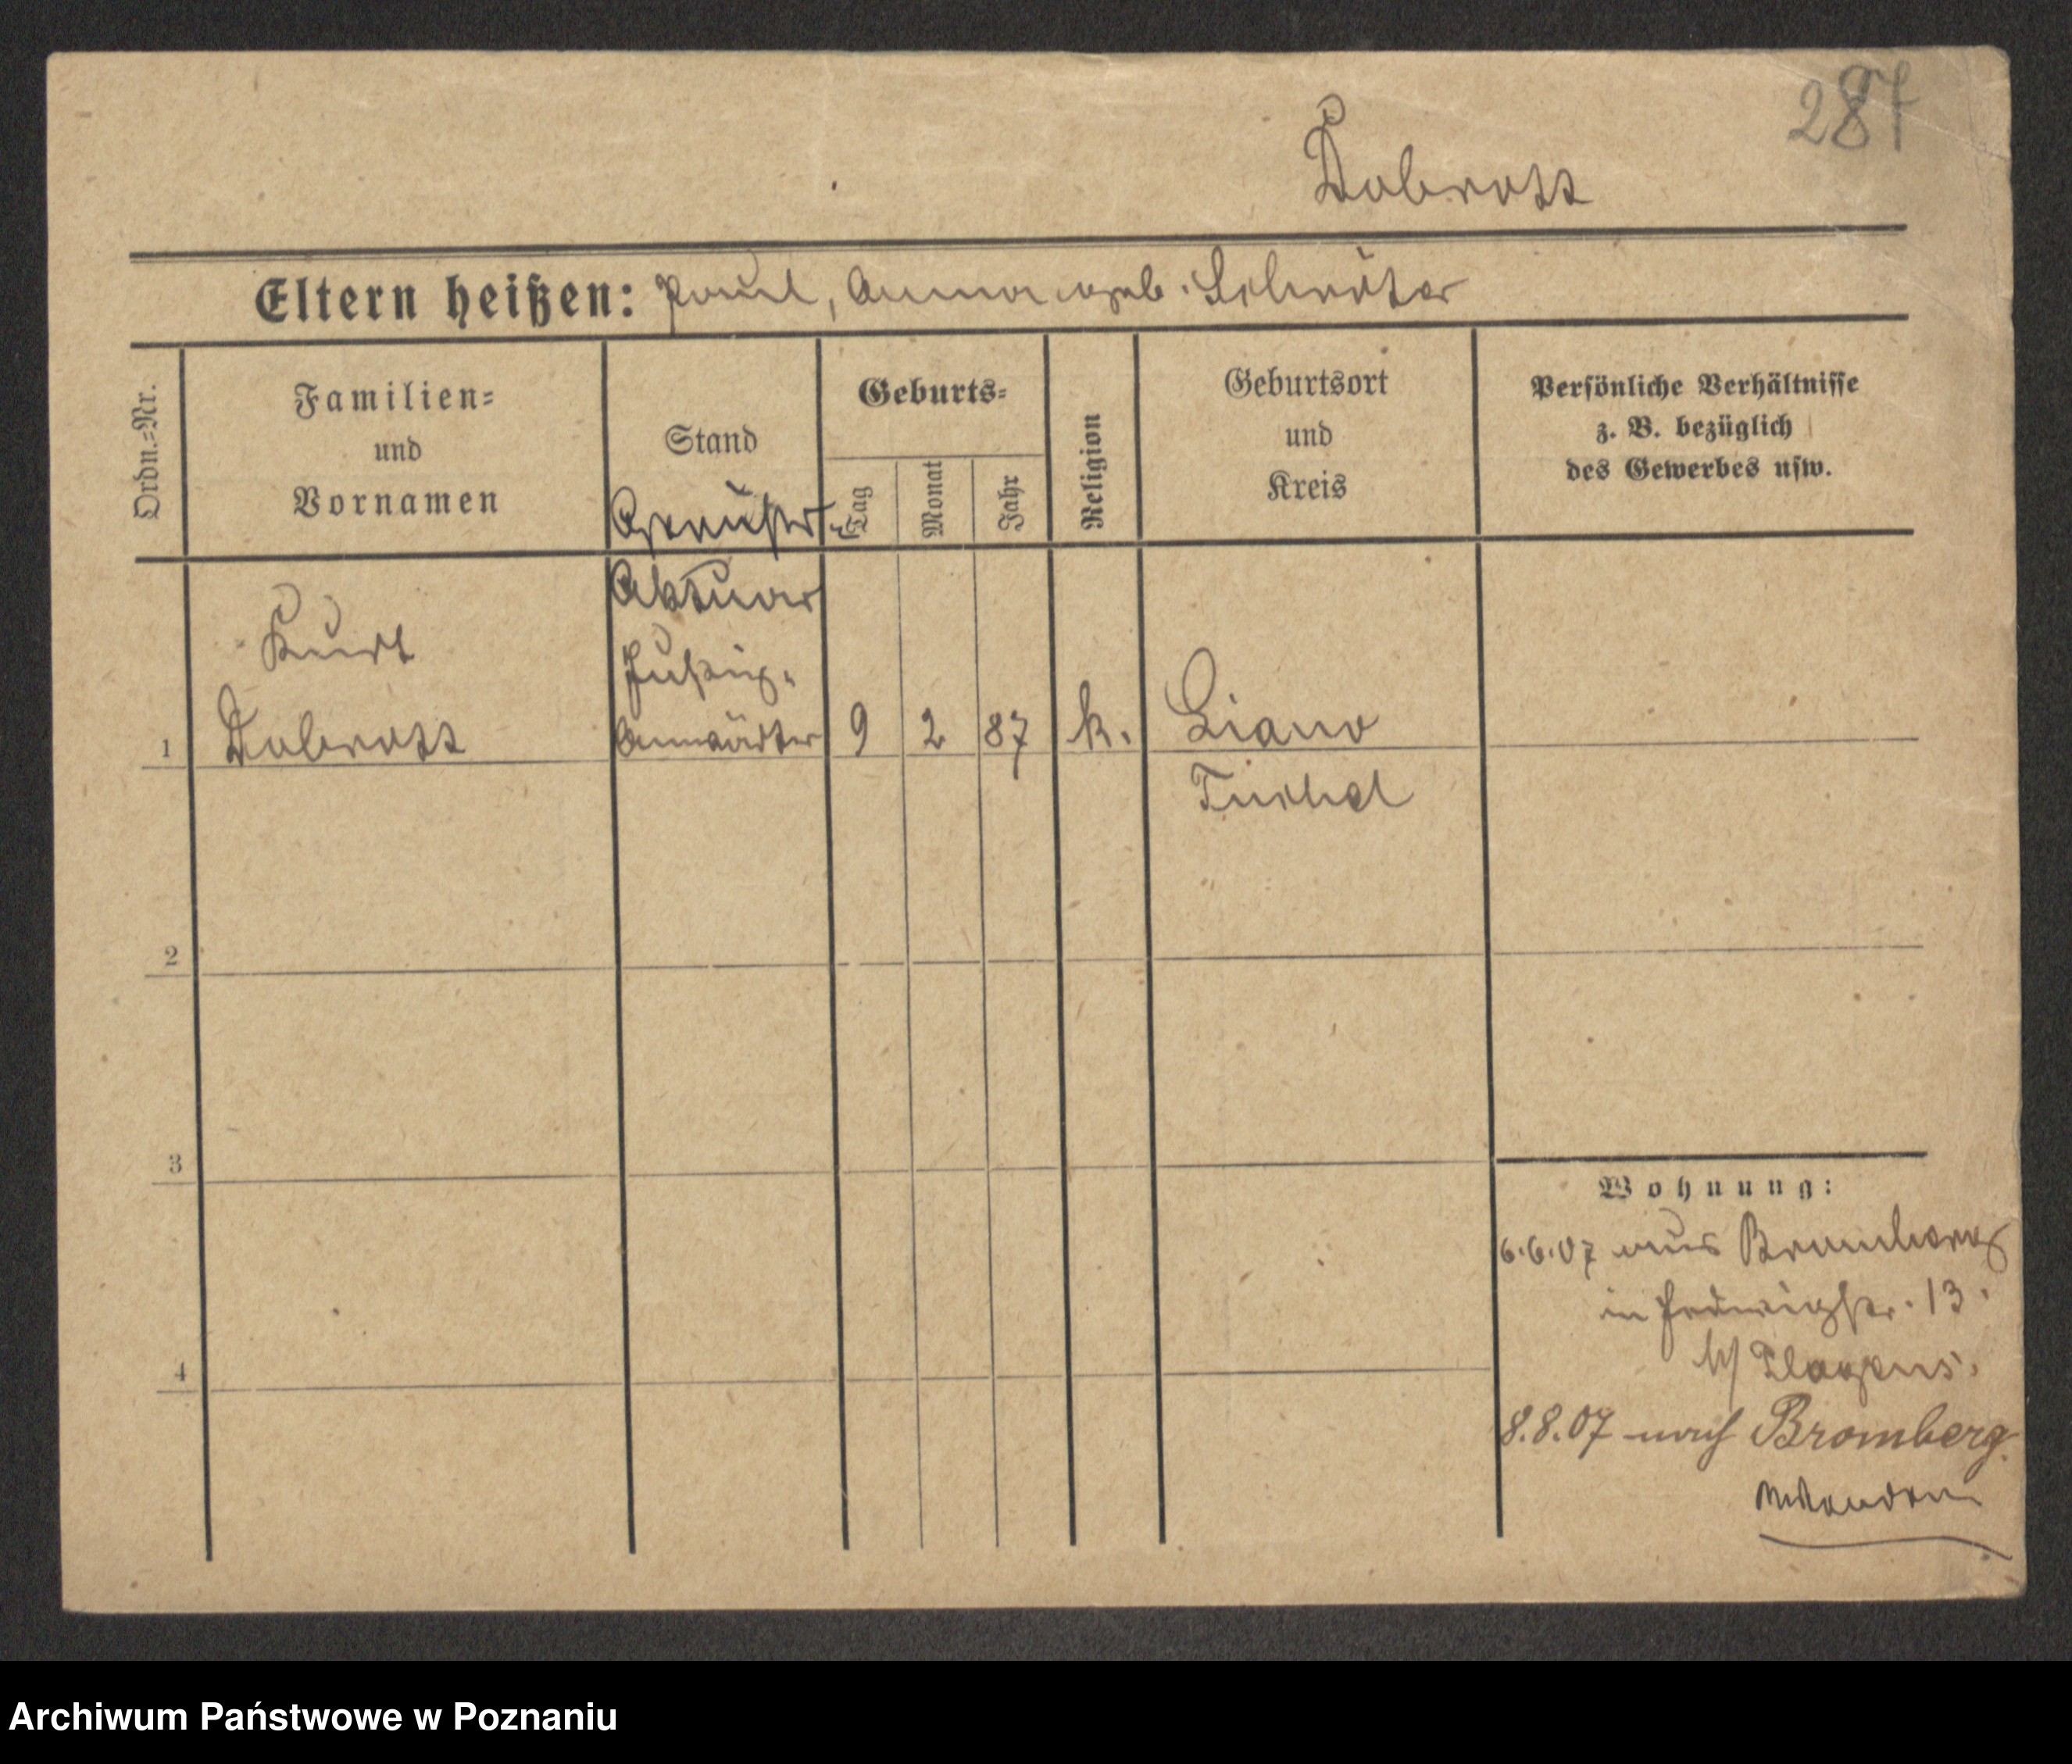 287
Dobratz
Eltern heißen: Paul, Anna geb. Schröter
Ordn.=Nr.
Familien=
und
Vornamen
Stand
Geburts=
Tag
Monat
Jahr
Religion
Geburtsort
und
Kreis
Persönliche Verhältnisse
z. B. bezüglich
des Gewerbes usw.
Aktuar
Kurt
Justiz-
1 Dobratz Anwärter 9 2 87 k. Liano
Tuchel
2
3
4
Wohnung:
6.6.07 aus Bromberg
in Hedwigstr. 13.
b/
8.8.07 nach Bromberg.
Archiwum Państwowe w Poznaniu